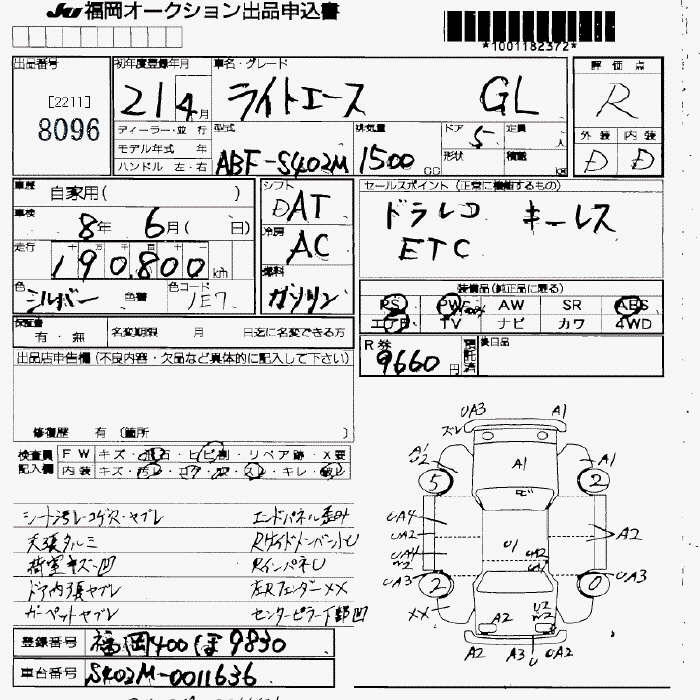 JU 福岡オークション出品申込書
*1001182372*
出品番号 初年度登録年月 車名・グレード 評価点
[2211]
8096
21 4月 ライトエース GL R
ディーラー・並行 型式 排気量 ドア 定員 外装 内装
モデル年式 年 5 人
ハンドル 左・右 ABF-S402M 1500 CC 形状 積載 D D
車歴 自家用( ) シフト セールスポイント (正常に機能するもの)
DAT ドラレコ キーレス
車検 8年 6月( 日) 冷房 ETC
走行 AC
190,800 km 燃料
装備品(純正品に限る)
色 シルバー 色番 色コード 1E7 ガソリン PS PW AW SR ABS
エアB TV ナビ カワ 4WD
保証書 有・無 名変期限 月 日迄に名変できる方
R券 9660円 預託済 後日品
出品店申告欄 (不良内容・欠品など具体的に記入して下さい)
修復歴 有 (箇所 )
検査員 FW キズ・飛石・ヒビ割・リペア跡・X要
記入欄 内装 キズ・汚レ・コゲ・穴・スレ・キレ・
シート汚レコゲ穴・ヤブレ エンドパネル歪外
天張タルミ RサイドメンバントU
荷室キズ凹 RインパネU
ドア内張ヤブレ 左Rフェンダー XX
カーペットヤブレ センターピラー下部凹
UA3 A1
ズレ
A1 A1
U2 A1
5 2
UA4
UA2 U1 UA2 A2
UA4 UA1
W2
UA3 2 0 UA3
XX U2
A2 W2
A2 A3 U A2
登録番号 福岡400ほ9830
車台番号 S402M-0011636